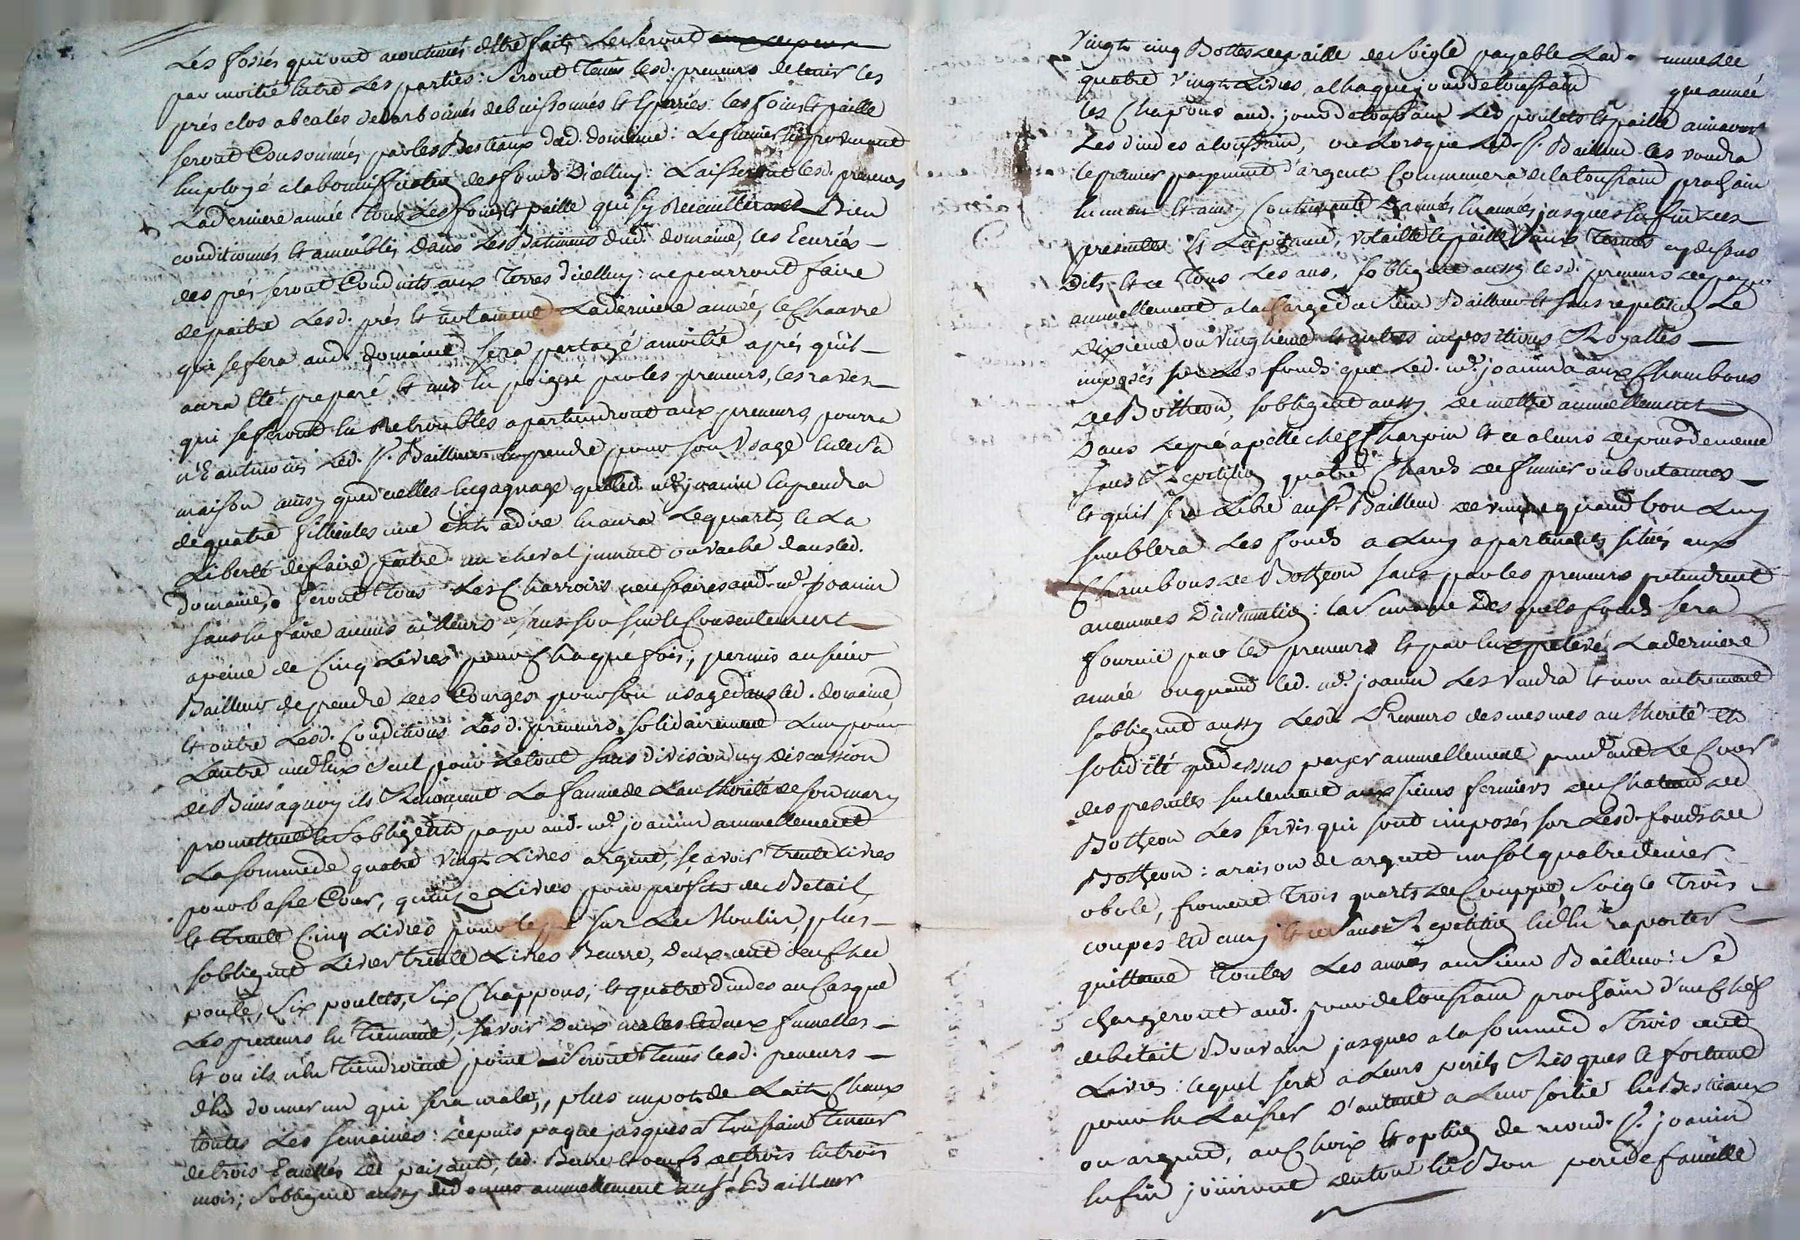 Les fossés qui ont acoutumés dêtre faits Le seront
par moitié Entre Les parties: Seront tenus lesd. preneurs de tenir les
prés clos
seront Consommés par les Bestiaux dud. domaine: Le fumier
Employé a la bonnification des fonds d'icelluy: Laisseront lesd. preneurs
La derniere année tous Les foins et paille qui sy Recueilleront Bien
conditionnés et ameublés dans Les Batiments dud. domaine, les Ecuries
des prés seront Conduits aux terres d'icelluy: ne pourront faire
depaitre Lesd. prés et notament La derniere année, le Chanvre
qui se fera aud. domaine sera partagé a moitié après qu'il
aura Eté preparé, et mis En poigné par les preneurs, les raves
qui se feront En Retroubles apartiendront aux preneurs, pourra
néantmoins Led. Sr. Bailleur En prendre pour son Usage En sa
maison aussy que d'icelles En gagnage que led. me joanin En pendra
de quatre fillieules une cest a dire En aura Le quart, et La
Liberté de faire paitre un cheval jument ou vache dans led.
domaine, Seront tous Les Charrois necessaires aud. me joanin
sans En faire aucuns ailleurs sans son Consentement
a peine de Cinq Livres pour Chaque fois; permis au sieur
Bailleur de prendre des Courges pour son usage dans led. domaine,
Et outre Lesd. Conditions Lesd. preneurs solidairement L'un pour
L'autre un d'Eux seul pour Le tout sans division ny discussion
de Biens a quoy ils Renoncent La famme de L'authorité de son mary
promettent et sobligent payer aud. me joanin annuellement
La somme de quatre vingt Livres argent, sçavoir trente Livres
pour Basse Cour, quinze Livres pour profits du Betail,
et trente Cinq Livres pour le sur Le Moulin, plus
sobligent Livrer trente Livres Beurre, deux cent oeufs de
poule, Six poulets, Six Chappons, et quatre dindes au Casque
Les preneurs En tiennent, sçavoir deux males et deux fumelles
et ou ils n'En tiendroient point Seront tenus lesd. preneurs
d'En donner un qui sera male, plus un pot de Lait Chaux
toutes Les semaines: depuis paque jusques a Toussaint teneur
de trois Ecuelles led. Beure et oeufs de trois En trois
mois; sobligent aussy de donner annuellement au Sr. Bailleur
Vingt cinq Bottes de paille de Seigle payable Lad.
quatre vingt Livres, a Chaque jour de toussaint que année
les Chapons aud. jour de toussaint Les poulets et paille
Les dindes a toussaint, ou Lorsque Led. Sr. Bailleur les voudra
le premier payement d'argent Commencera a la toussaint prochain
En un an Et ainsy Continuera d'années En années jusques En fin des
presentes et Lesd. volaille et paille dans termes cy dessus
Dits et ce tous Les ans, sobligent aussy lesd. preneurs de payer
annuellement a la decharge du Sieur Bailleur et sans repetition Le
dixieme ou Vingtieme et autres impositions Royalles
imposés sur Les fonds que Led. me joanin a aux Chambons
de Botheon, sobligent aussy de mettre annuellement
dans Le pré apellé chez Charpin et ce a leurs depens
Sans Repetition quatre Chards de fumier
Et qu'il sera Libre au Sr. Bailleur de vendre quand bon Luy
semblera Les fonds a Luy apartenants situés aux
Chambons de Botheon sans par les preneurs pretendre
aucunnes Diminution: La Semence des quels fonds sera
fournie par les preneurs et par Eux prelevé La derniere
année ou quand led. me joanin Les vendra et non autrement
sobligent aussy Lesd. Preneurs des mesmes authorité Et
solidité que dessus payer annuellement pendant Le Cours
des presentes seulement aux Sieurs fermiers du Chateau de
Botheon Les servis qui sont imposés sur Lesd. fonds de
Botheon: a raison de argent un sol quatre denier
obole, froment trois quarts de Couppe, Seigle trois
coupes et demy et ce sans Repetition Et d'En raporter
quittance toutes Les années au Sieur Bailleur: Se
chargeront aud. jour de toussaint prochain d'un Chef
de betail Bouvain jusques a la somme de trois cent
Livres: lequel sera a Leurs perils Risques et fortune
pour En Laisser d'autant a Leur sortie En Bestiaux
ou argent, au Choix Et option de mond. Sr. joanin
Enfin jouiront du tout En Bon pere de famille